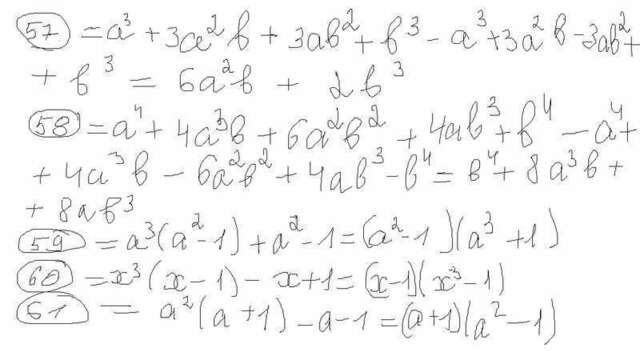 57 = a³ + 3a²b + 3ab² + b³ - a³ + 3a²b - 3ab² +
+ b³ = 6a²b + 2b³
58 = a⁴ + 4a³b + 6a²b² + 4ab³ + b⁴ - a⁴ +
+ 4a³b - 6a²b² + 4ab³ - b⁴ = b⁴ + 8a³b +
+ 8ab³
59 = a³(a² - 1) + a² - 1 = (a² - 1)(a³ + 1)
60 = x³(x - 1) - x + 1 = (x - 1)(x³ - 1)
61 = a²(a + 1) - a - 1 = (a + 1)(a² - 1)